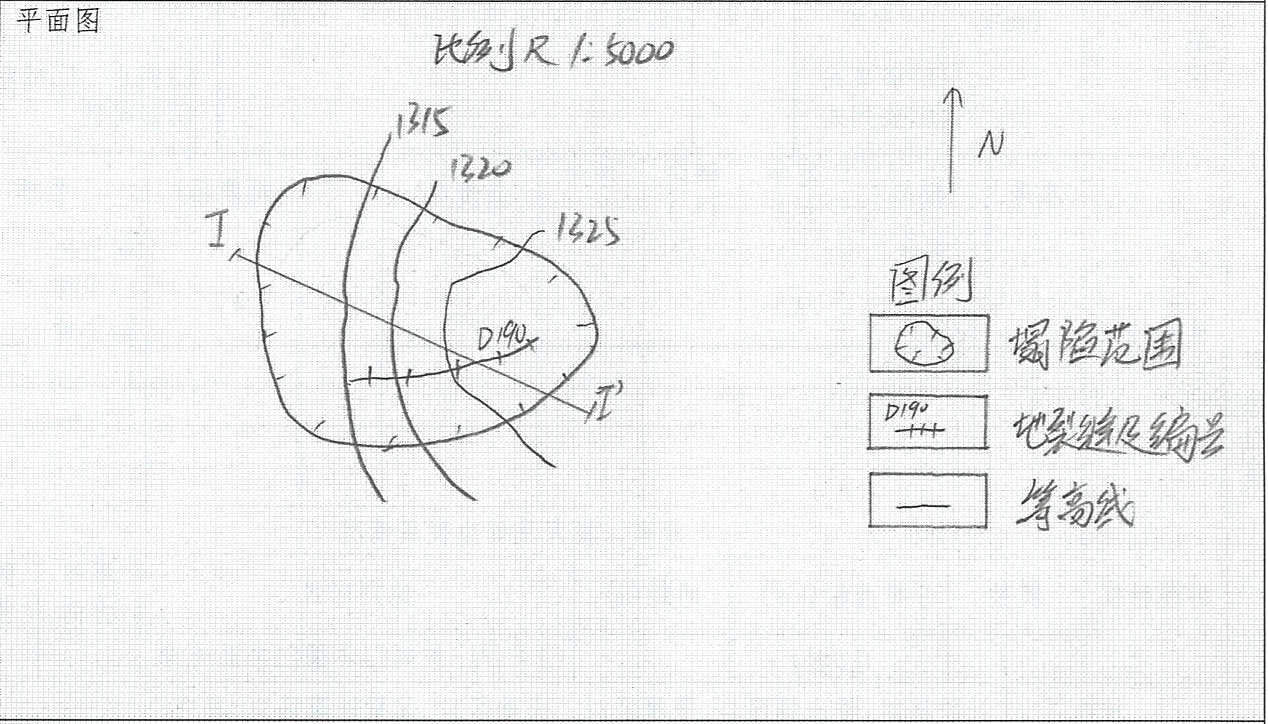 平面图
比例尺 1:5000
1315
N
1320
I
1325
图例
D190
塌陷范围
I'
D190
地裂缝及编号
等高线